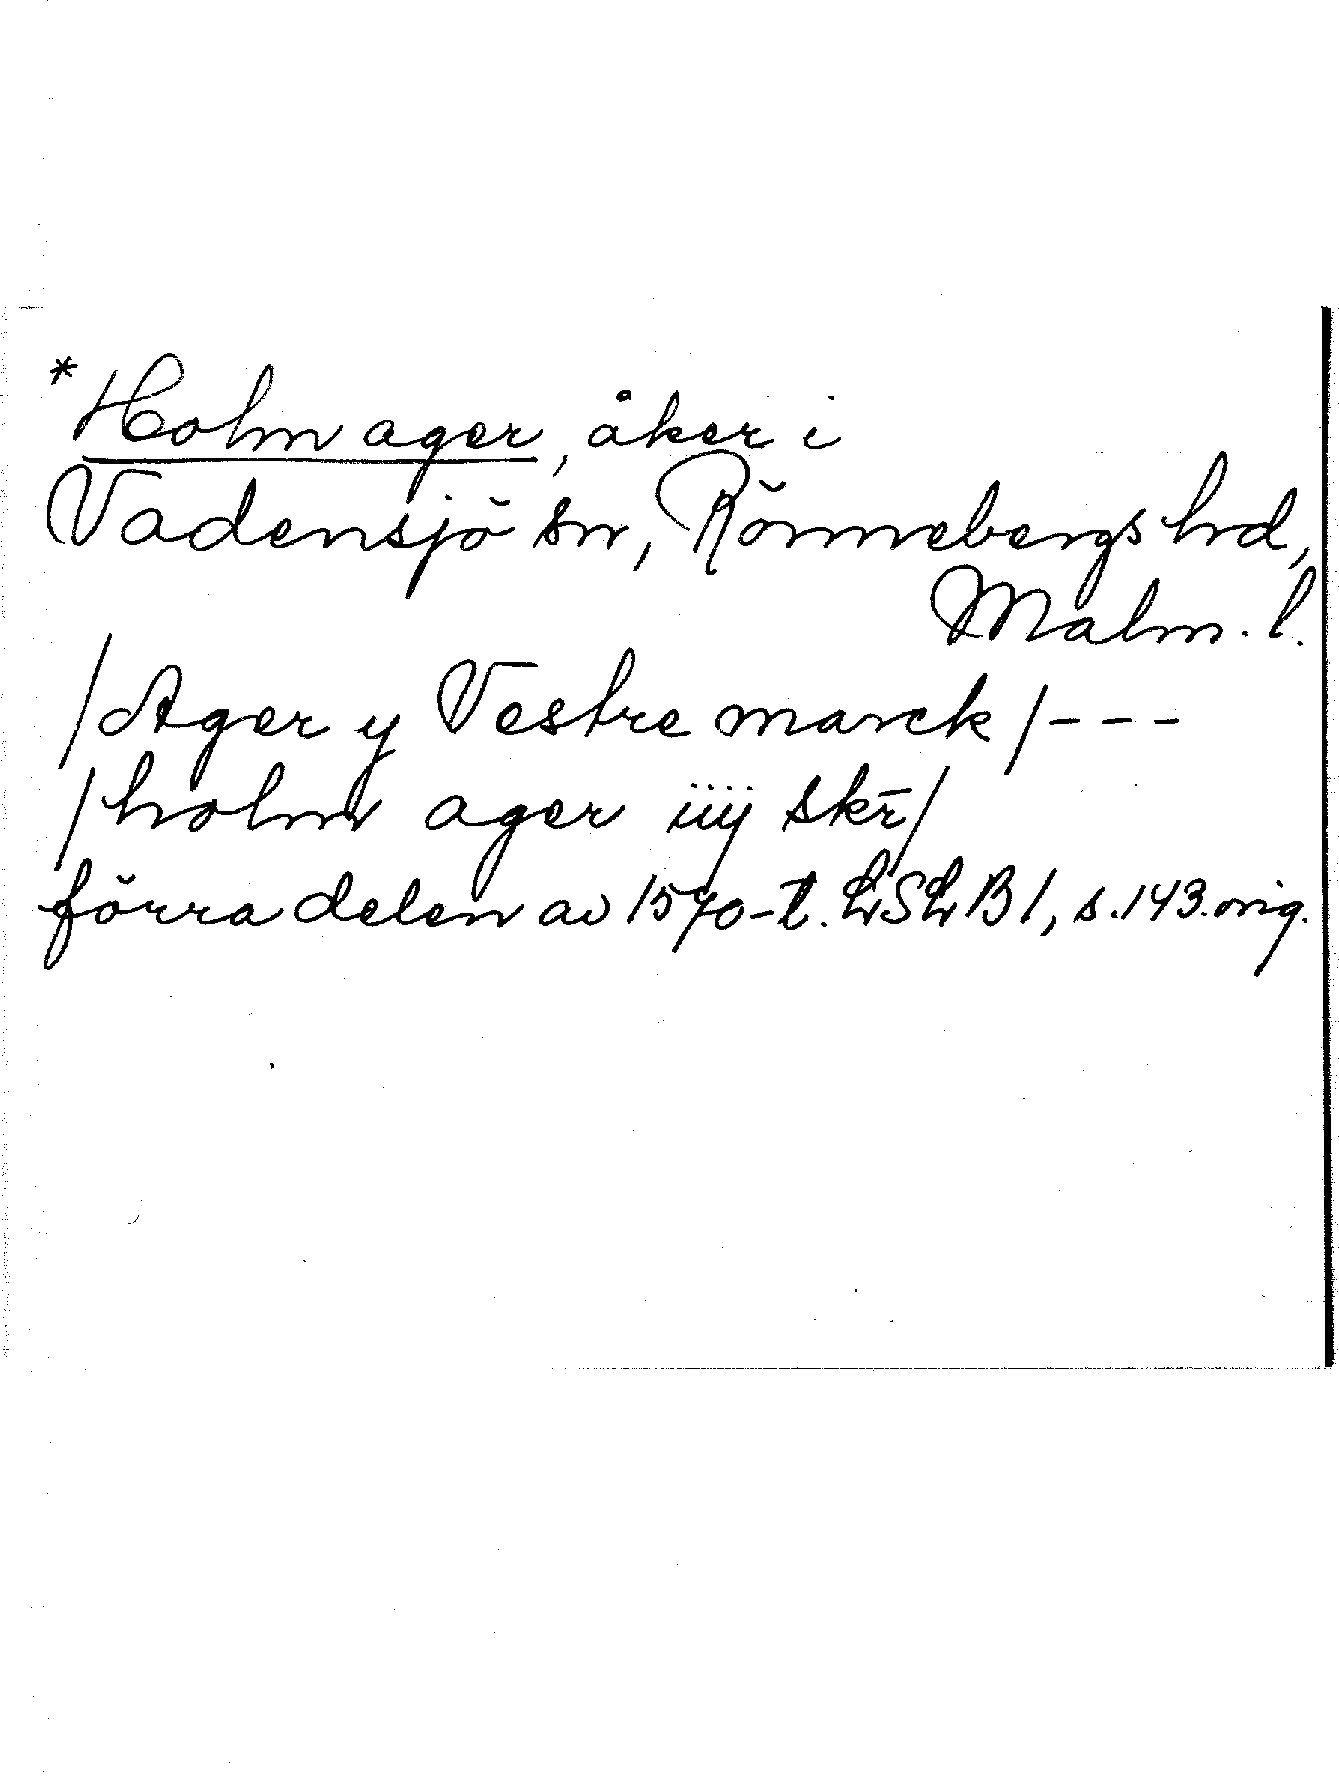 *Holm ager, åker i
Vadensjö sn, Rönnebergs hrd,
Malm. l.
/Ager y Vestre marck/---
/holm ager iiij skr̄/
förra delen av 1570-t. LSLB 1, s.143.orig.